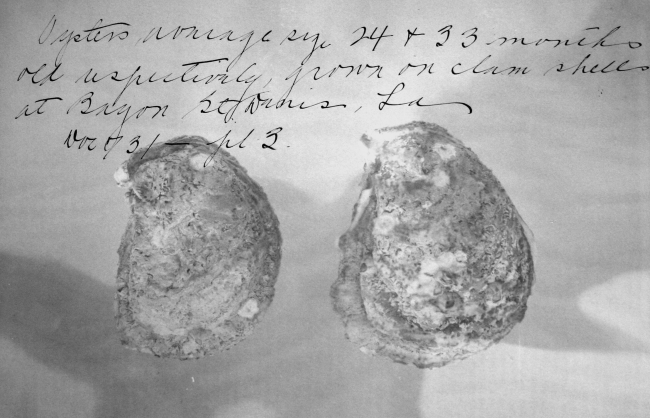 Oysters average size 24 & 33 months
old respectively, grown on clam shells
at Bayou St Denis, La
Doc 731 — pl 3.